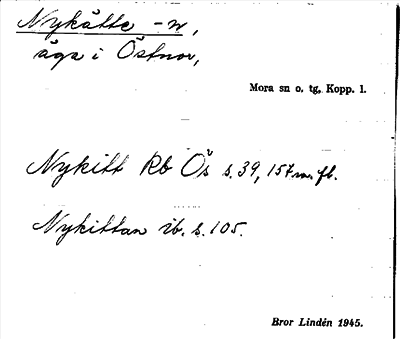 Nykåtte -n,
äga i Östnor,
Mora sn o. tg, Kopp. l.
Nykitt Rb Ös s. 39, 157 m. fl.
Nykittan ib. s. 105.
Bror Lindén 1945.